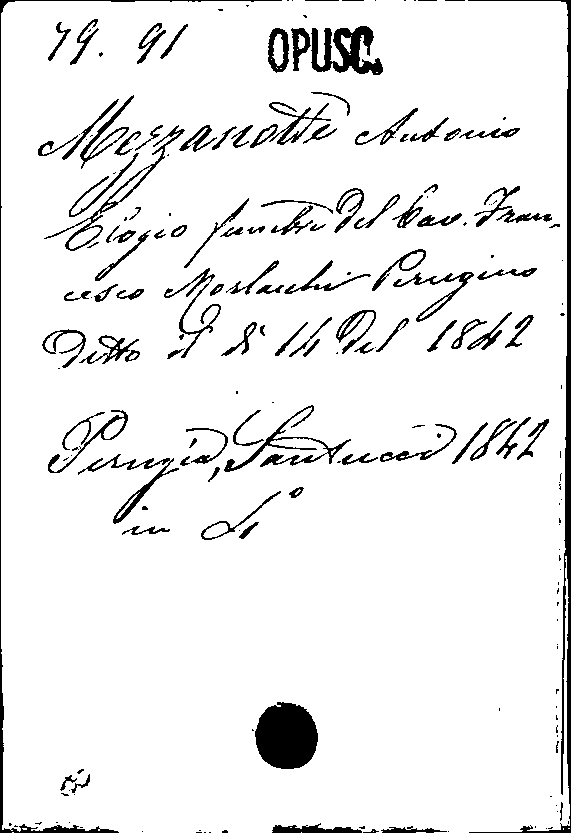 79. 91 OPUSC.
Mezzanotte Antonio
Elogio funebre del Cav. Fran-
cesco Morlacchi Perugino
Detto il dì 14 del 1842
Perugia, Santucci 1842
in 4°